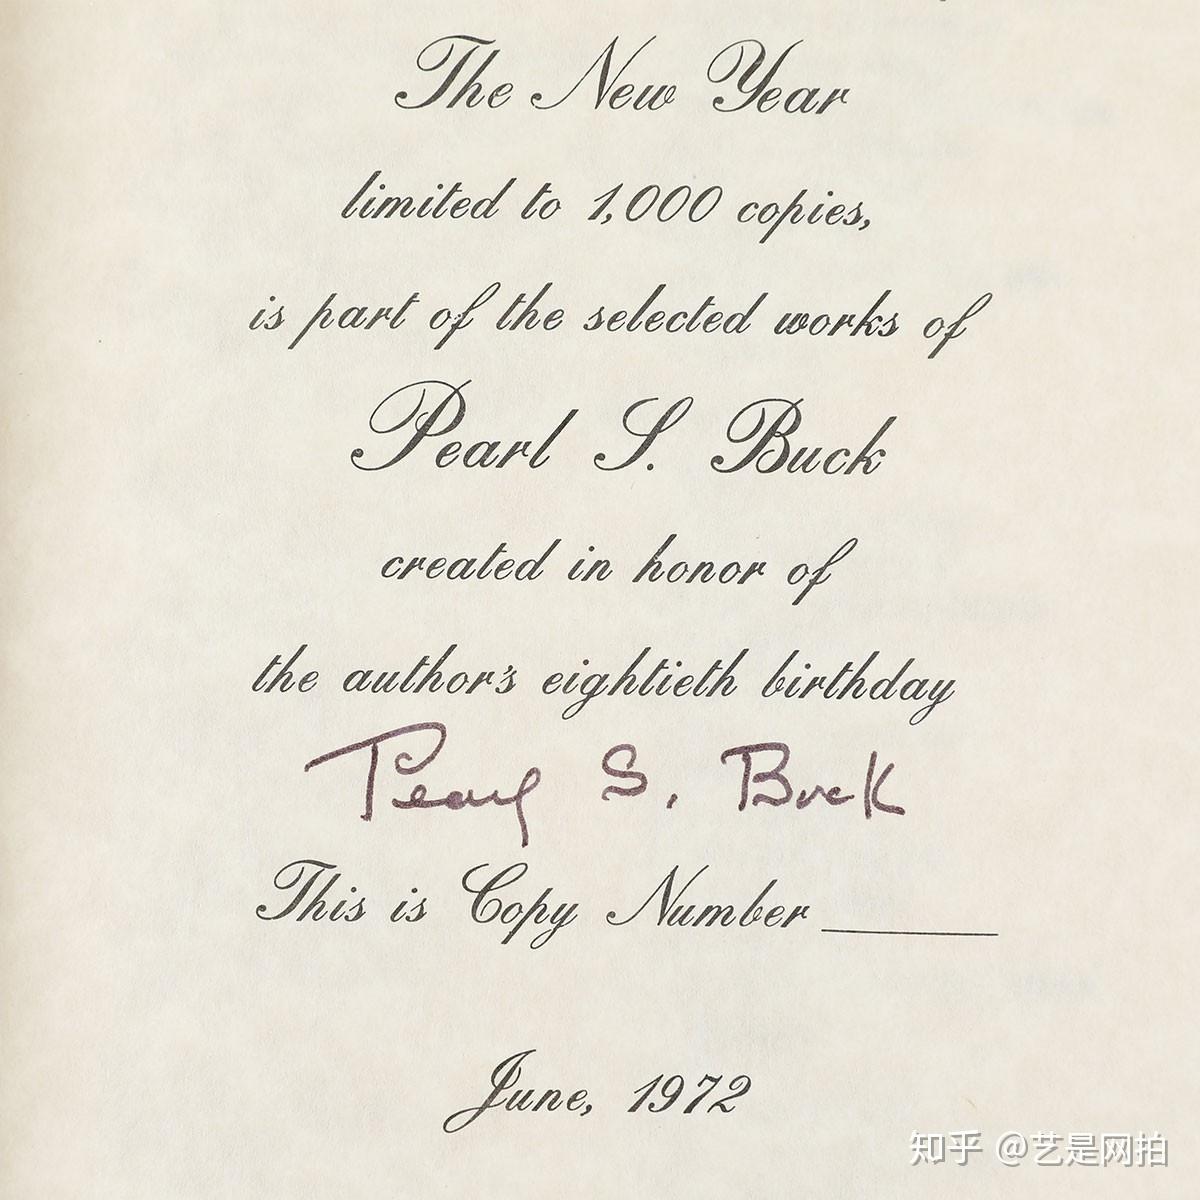 The New Year
limited to 1,000 copies,
is part of the selected works of
Pearl S. Buck
created in honor of
the author's eightieth birthday
Pearl S. Buck
This is Copy Number
June, 1972
知乎 @艺是网拍